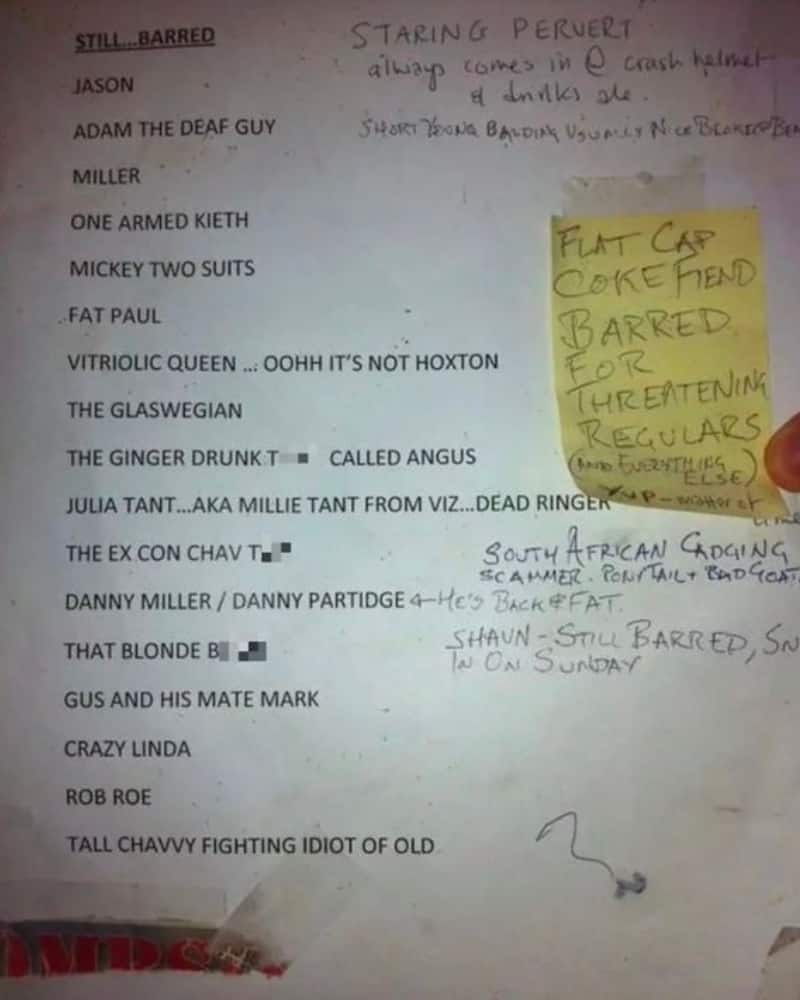 STILL...BARRED
STARING PERVERT
always comes in @ crash helmet
& drinks ale.
JASON
ADAM THE DEAF GUY
SHORT YOUNG BALDING USUALLY NICE
MILLER
ONE ARMED KIETH
MICKEY TWO SUITS
FAT PAUL
VITRIOLIC QUEEN ... OOHH IT'S NOT HOXTON
THE GLASWEGIAN
THE GINGER DRUNK T CALLED ANGUS
JULIA TANT...AKA MILLIE TANT FROM VIZ...DEAD RINGER
FLAT CAP
COKE FIEND
BARRED
FOR
THREATENING
REGULARS
(AND EVERYTHING
ELSE)
THE EX CON CHAV T
SOUTH AFRICAN CADGING
SCAMMER. PONYTAIL + BAD GOAT
DANNY MILLER / DANNY PARTIDGE ← HE'S BACK & FAT.
THAT BLONDE B
SHAUN - STILL BARRED, SN
IN ON SUNDAY
GUS AND HIS MATE MARK
CRAZY LINDA
ROB ROE
TALL CHAVVY FIGHTING IDIOT OF OLD